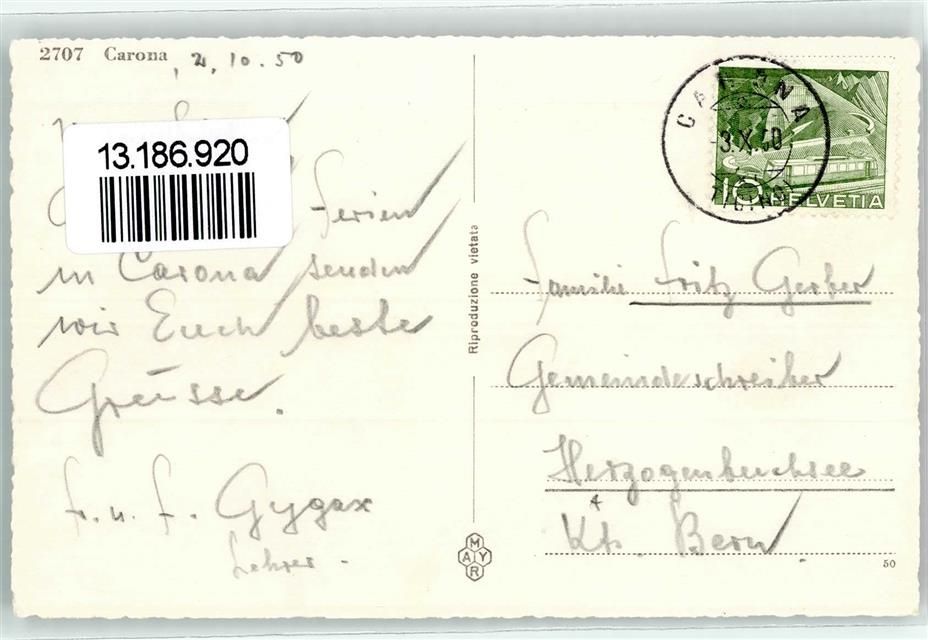 2707 Carona, 2.10.50
13.186.920
Ferien
in Carona senden
wir Euch beste
Grüsse.
Fr. u. F. Gygax
Lehrer.
Riproduzione vietata
MAYR
CARONA
-3.X.50
10 HELVETIA
Familie Fritz Gerber
Gemeindeschreiber
Herzogenbuchsee
Kt. Bern
50